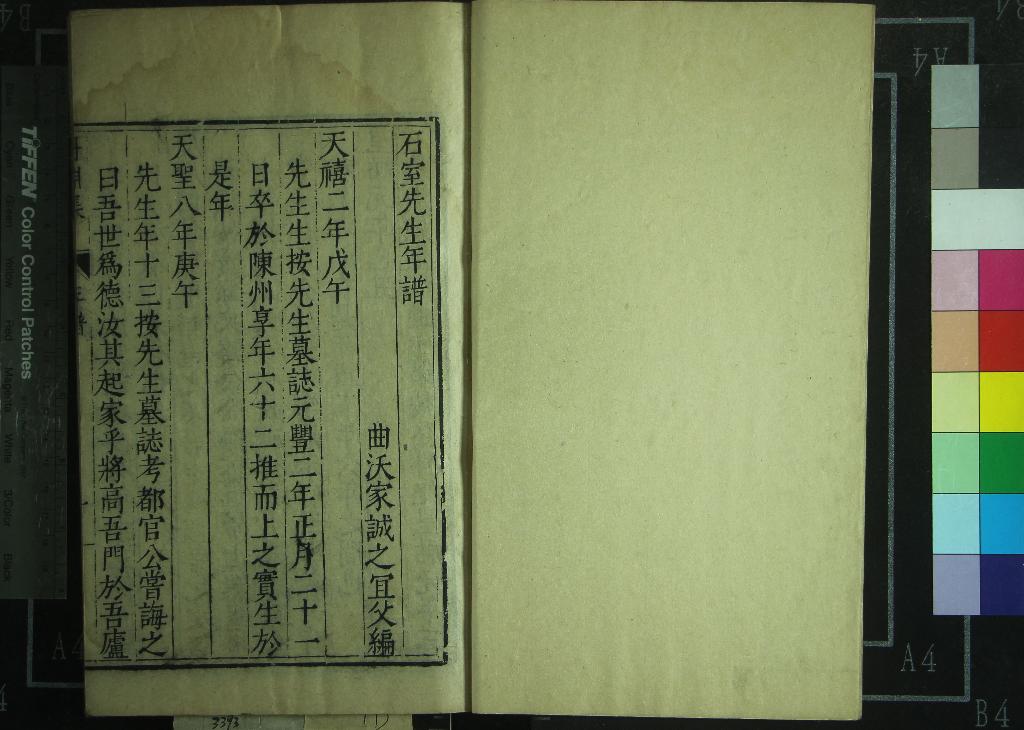 石室先生年譜
曲沃家誠之宜父編
天禧二年戊午
先生生按先生墓誌元豐二年正月二十一
日卒於陳州享年六十二推而上之實生於
是年
天聖八年庚午
先生年十三按先生墓誌考都官公嘗誨之
曰吾世爲德汝其起家乎將高吾門於吾廬
TIFFEN Color Control Patches
A4
A4
A4
B4
3393